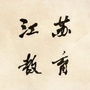 江苏
教育